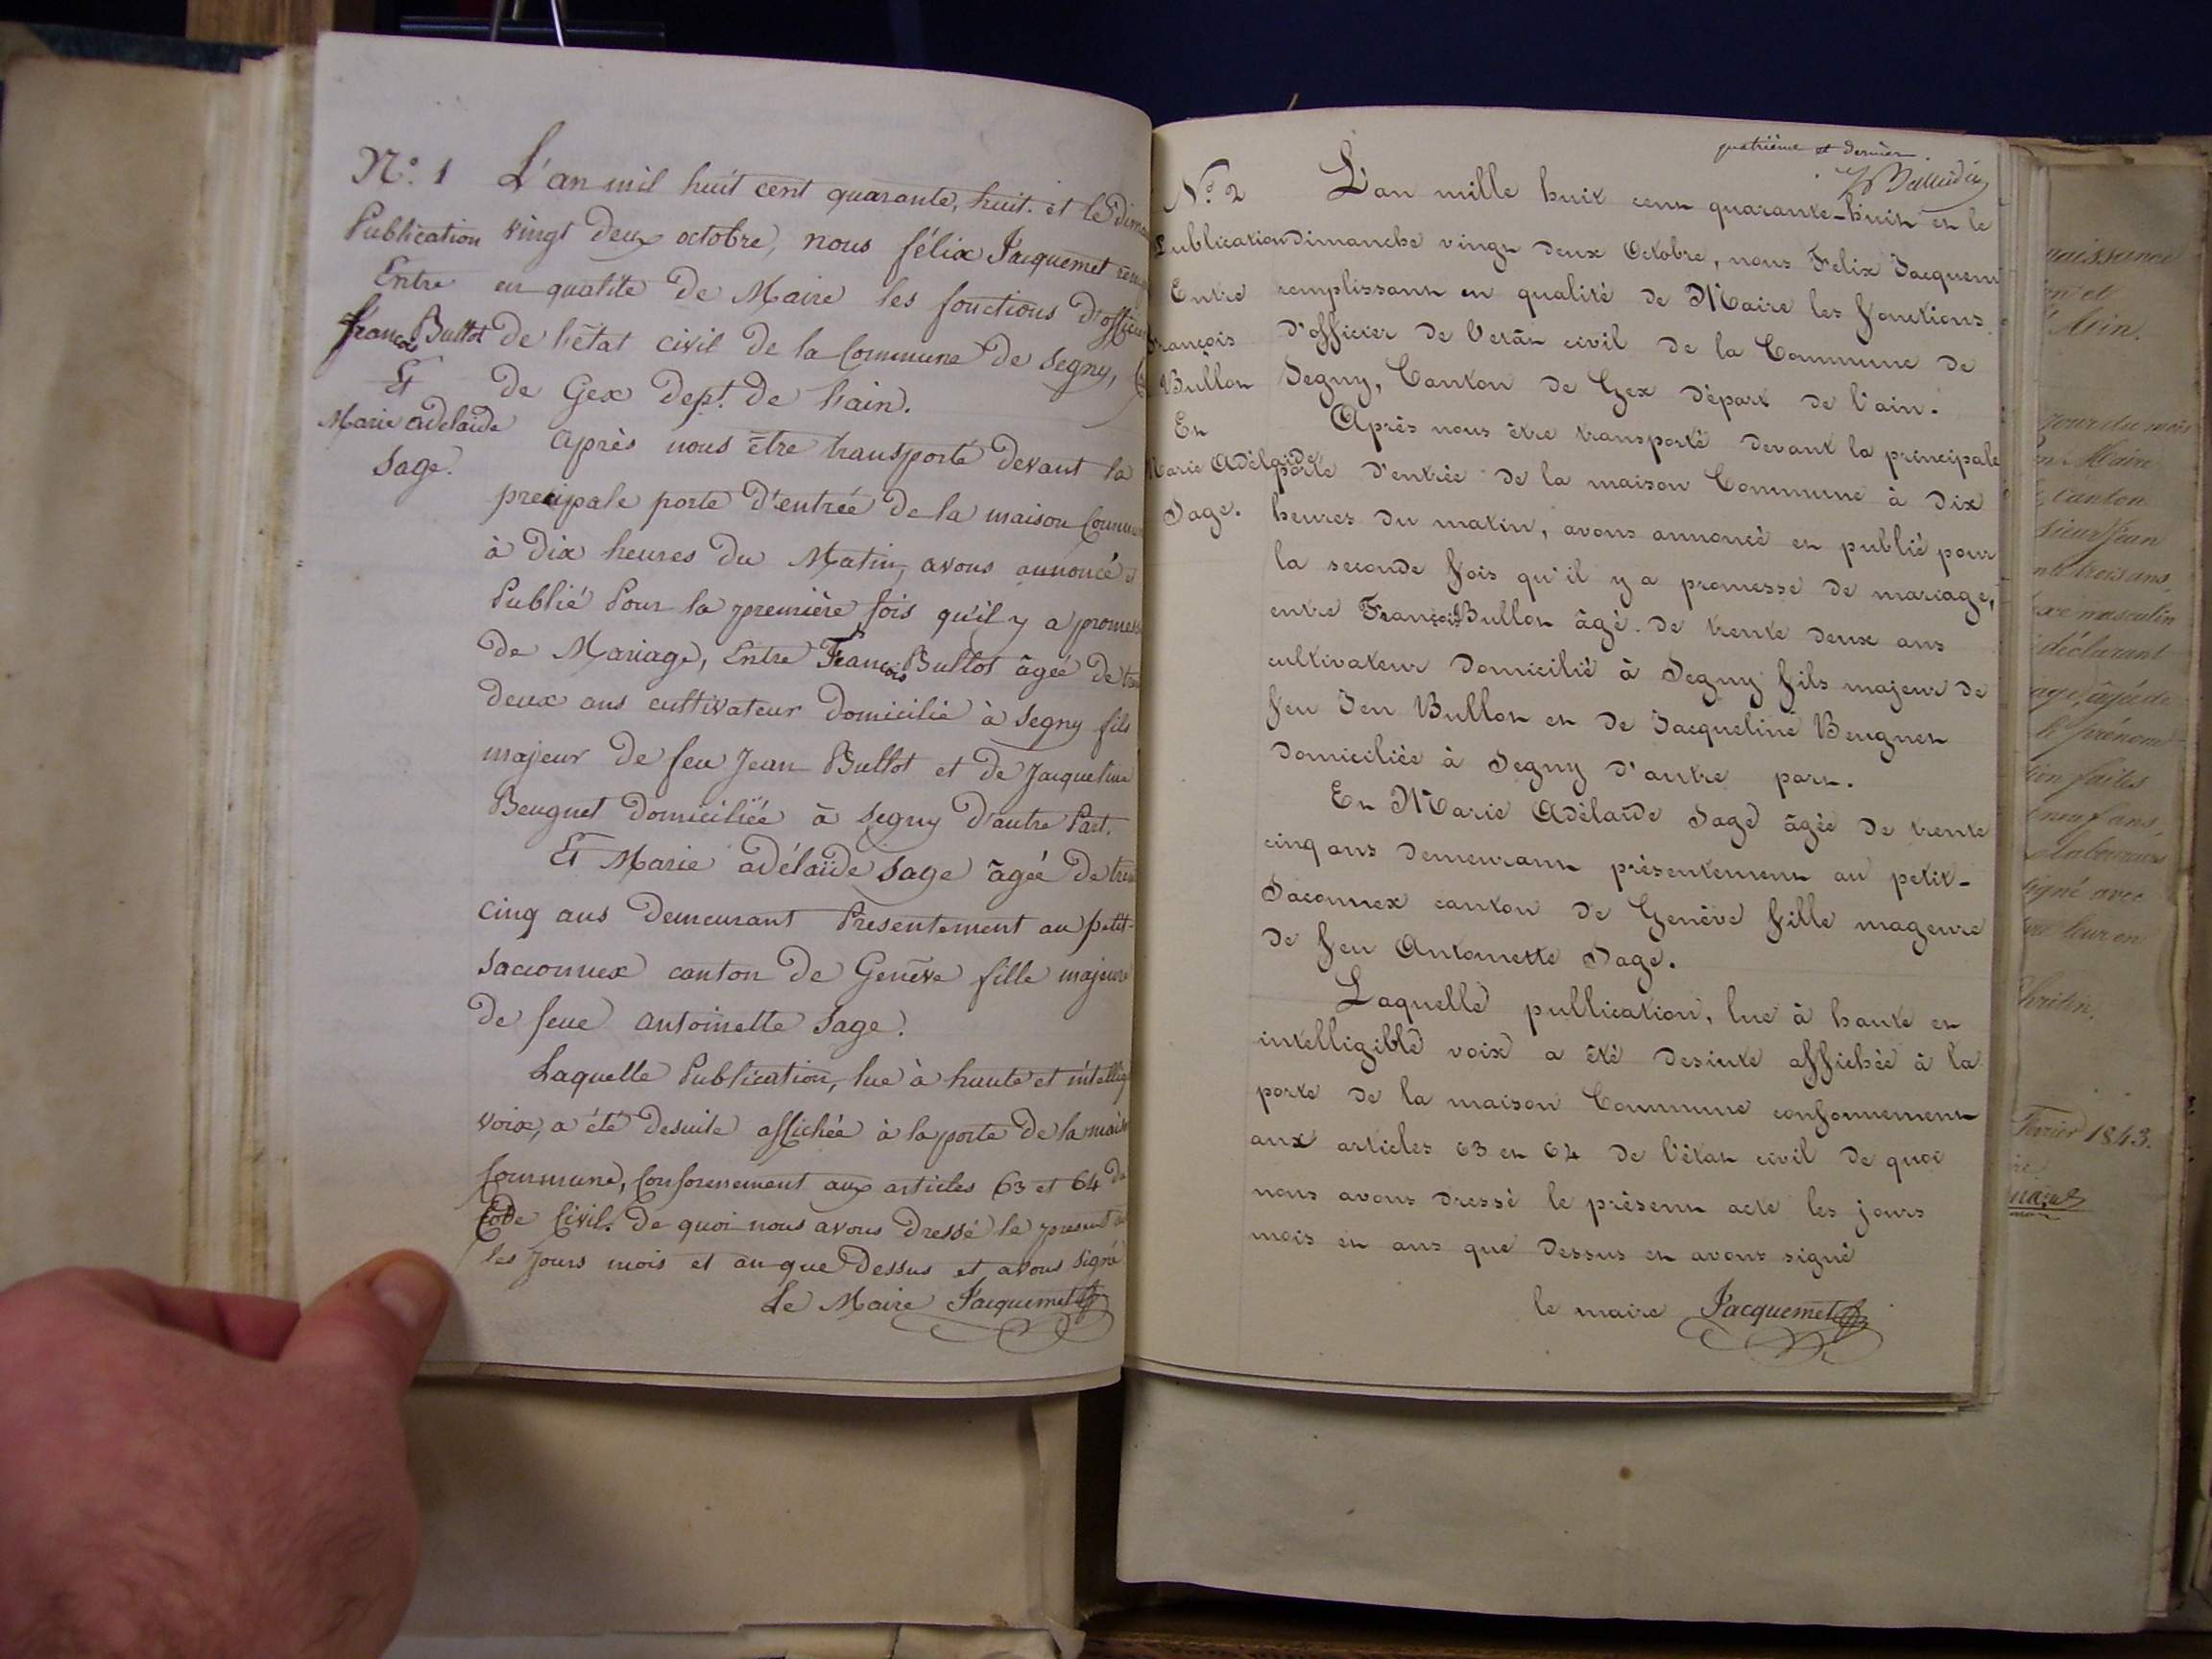 N.° 1
Publication
Entre
françois Bullot
Et
Marie adelaïde
Sage.
L'an mil huit cent quarante, huit. et le dim
vingt deux octobre, nous félix Jacquemet rem
en qualité de Maire les fonctions d'officier
de l'état civil de la Commune de Segny,
de Gex Dept. de l'ain.
Après nous être transporté devant la
precipale porte d'entrée de la maison Commun
à dix heures du Matin, avons annoncé
Publié Pour la première fois qu'il y a promes
de Mariage, Entre François Bullot âgée de
deux ans cultivateur domicilié à Segny fils
majeur de feu Jean Bullot et de Jacqueline
Beugnet domiciliée à Segny d'autre Part.
Et Marie adélaïde Sage âgée de tren
cinq ans demeurant Presentement au petit-
Sacconnex canton de Genève fille majeure
de feue antoinette Sage.
Laquelle Publication, lue à haute et intellig
voix, a été desuite affichée à la porte de la mais
Commune, Conforement aux articles 63 et 64 du
Code Civil. De quoi nous avons dressé le present
les Jours mois et an que dessus et avons signé
Le Maire Jacquemet
quatrième et dernier.
N.° 2
Publication
Entre
François
Bullot
Et
Marie Adélaïde
Sage.
L'an mille huit cent quarante-huit et le
dimanche vingt deux Octobre, nous Felix Jacquem
remplissant en qualité de Maire les fonctions
d'officier de l'etât civil de la Commune de
Segny, Canton de Gex départ de l'ain.
Après nous être transporté devant la principale
porte d'entrée de la maison Commune à dix
heures du matin, avons annoncé et publié pour
la seconde fois qu'il y a promesse de mariage,
entre François Bullot âgé de trente deux ans
cultivateur domicilié à Segny fils majeur de
feu Jen Bullot et de Jacqueline Beugnet
domiciliée à Segny d'autre part.
Et Marie Adélaïde Sage âgée de trente
cinq ans demeurant présentement au petit-
Saconnex canton de Genève fille mageure
de feu Antoinette Sage.
Laquelle publication, lue à haute et
intelligible voix a été desuite affichée à la
porte de la maison Commune conformement
aux articles 63 et 64 de l'état civil de quoi
nous avons dressé le présent acte les jours
mois et ans que dessus et avons signé
le maire Jacquemet
naissance
on et
jour du mois
en Maire
Canton
sieur Jean
nte trois ans,
sexe masculin
déclarant
age, âgé de
le prénom
tion faites
neuf ans,
laboureurs
signé avec
leur en
Février 1843.